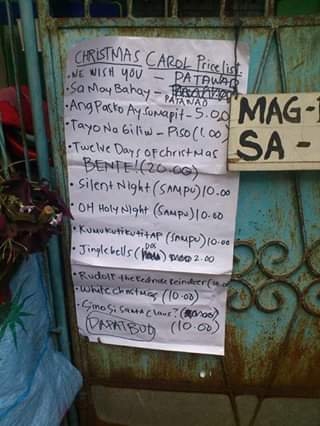 CHRISTMAS CAROL Price list.
• WE WISH YOU - PATAWAD
• Sa May Bahay - PATAWAD
• Ang Pasko Ay Sumapit - 5.00
• Tayo Na Giliw - Piso (1.00)
• Twelve Days of Christmas
BENTE! (20.00)
• Silent Night (SAMPU) 10.00
• OH Holy Night (SAMPU) 10.00
• Kumukutikutitap (SAMPU) 10.00
• Jingle bells (DOS) 2.00
• Rudolf-the Rednose Reindeer
• White Christmas (10.00)
• Sino Si Santa Claus? (10.00)
DAPAT BUO
MAG-
SA -